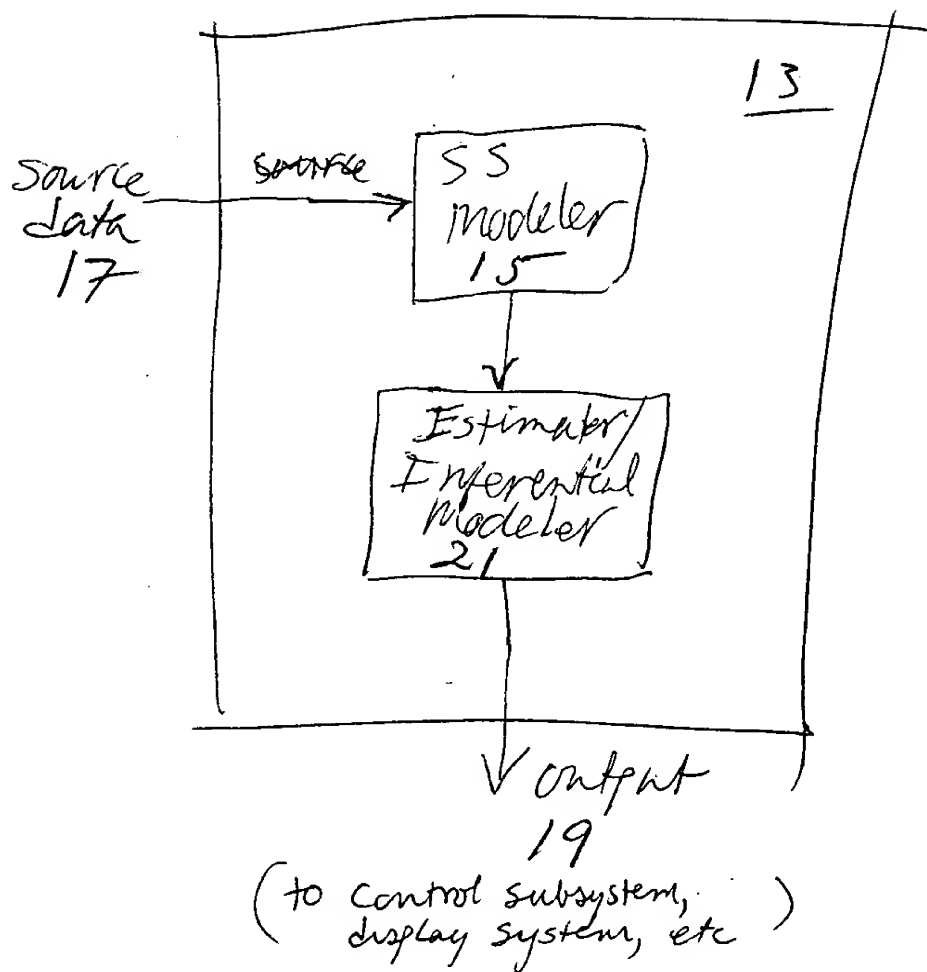 13
source
data
17
source
SS
modeler
15
Estimator/
Inferential
Modeler
21
output
19
(to control subsystem,
display system, etc)